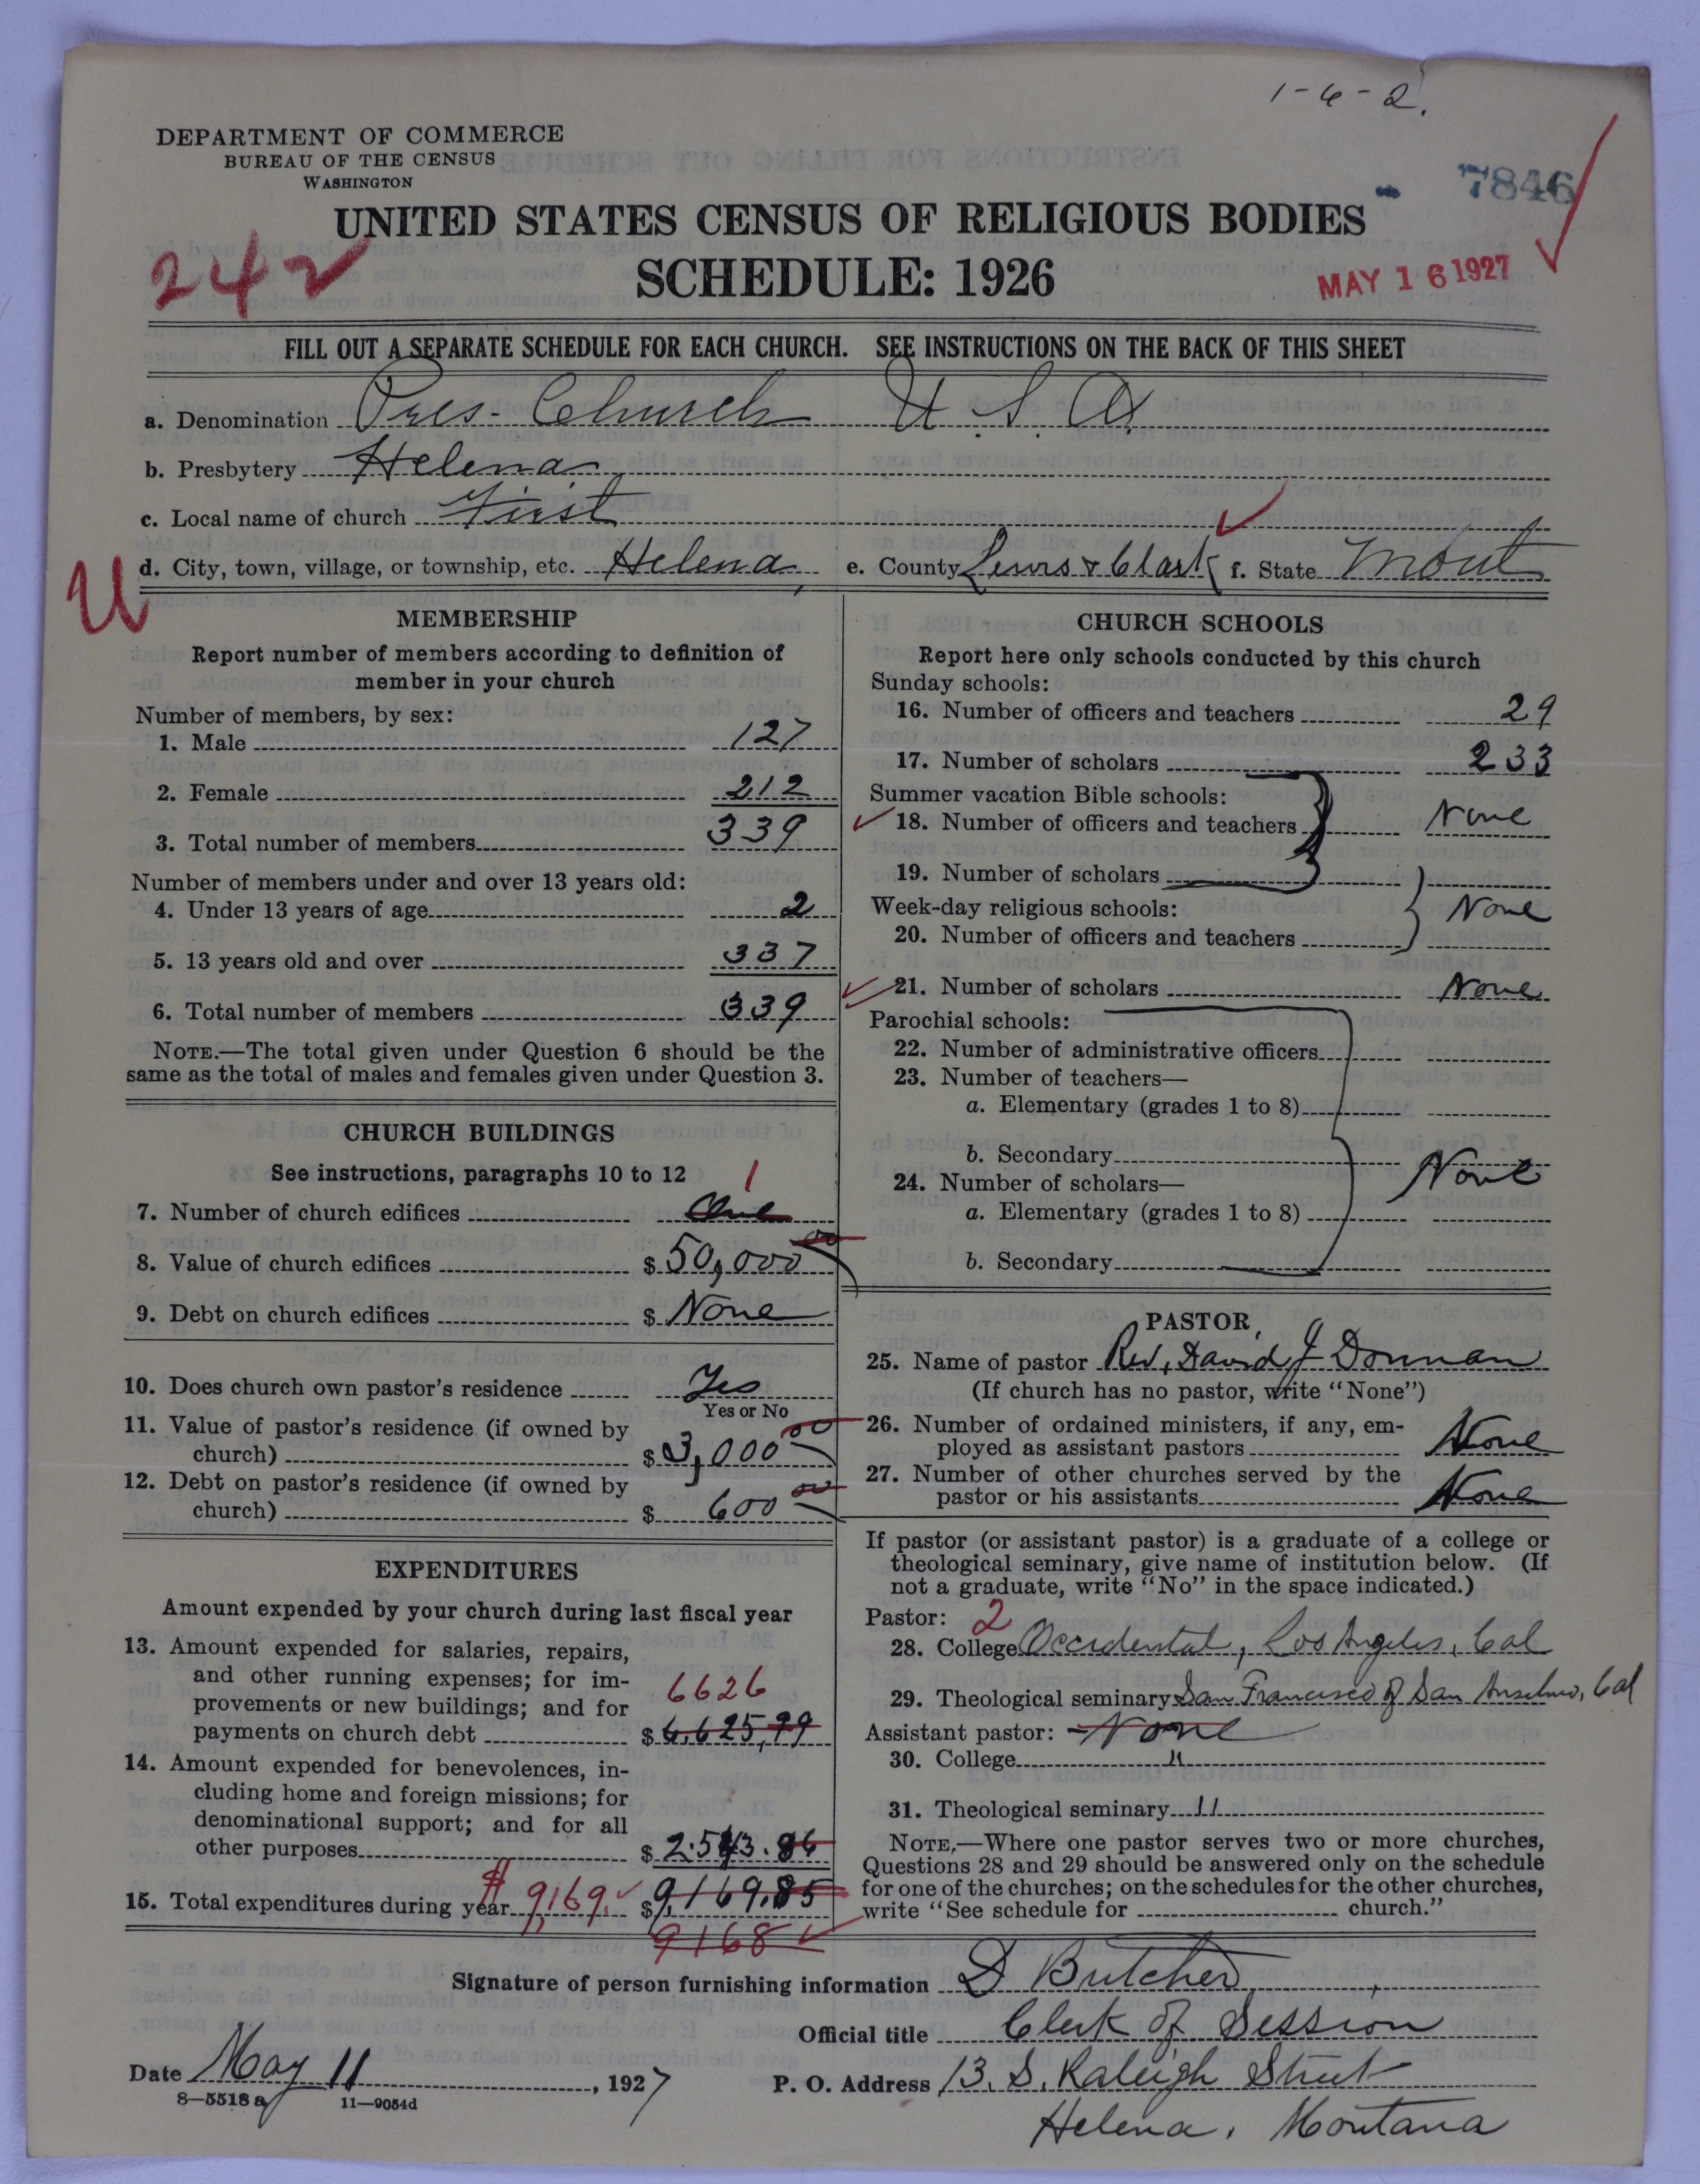 1-6-2.
DEPARTMENT OF COMMERCE
BUREAU OF THE CENSUS
WASHINGTON
7846
UNITED STATES CENSUS OF RELIGIOUS BODIES
242
SCHEDULE: 1926
MAY 16 1927
FILL OUT A SEPARATE SCHEDULE FOR EACH CHURCH. SEE INSTRUCTIONS ON THE BACK OF THIS SHEET
a. Denomination Pres- Church U. S. A.
b. Presbytery Helena
c. Local name of church First
d. City, town, village, or township, etc. Helena, e. County Lewis & Clark f. State Mont
U
MEMBERSHIP
Report number of members according to definition of
member in your church
Number of members, by sex:
1. Male 127
2. Female 212
3. Total number of members 339
Number of members under and over 13 years old:
4. Under 13 years of age 2
5. 13 years old and over 337
6. Total number of members 339
NOTE.—The total given under Question 6 should be the
same as the total of males and females given under Question 3.
CHURCH BUILDINGS
See instructions, paragraphs 10 to 12
1
7. Number of church edifices One
8. Value of church edifices $ 50,000 00
9. Debt on church edifices $ None
10. Does church own pastor's residence Yes
Yes or No
11. Value of pastor's residence (if owned by
church) $ 3,000 00
12. Debt on pastor's residence (if owned by
church) $ 600 00
EXPENDITURES
Amount expended by your church during last fiscal year
13. Amount expended for salaries, repairs,
and other running expenses; for im-
provements or new buildings; and for 6626
payments on church debt $ 6,625,99
14. Amount expended for benevolences, in-
cluding home and foreign missions; for
denominational support; and for all
other purposes $ 2.543.86
15. Total expenditures during year $ 9,169. $ 9,169.85
9168
CHURCH SCHOOLS
Report here only schools conducted by this church
Sunday schools:
16. Number of officers and teachers 29
17. Number of scholars 233
Summer vacation Bible schools:
18. Number of officers and teachers None
19. Number of scholars
Week-day religious schools: None
20. Number of officers and teachers
21. Number of scholars None
Parochial schools:
22. Number of administrative officers
23. Number of teachers—
a. Elementary (grades 1 to 8)
b. Secondary
24. Number of scholars— None
a. Elementary (grades 1 to 8)
b. Secondary
PASTOR
25. Name of pastor Rev, David J Donnan
(If church has no pastor, write "None")
26. Number of ordained ministers, if any, em-
ployed as assistant pastors None
27. Number of other churches served by the
pastor or his assistants None
If pastor (or assistant pastor) is a graduate of a college or
theological seminary, give name of institution below. (If
not a graduate, write "No" in the space indicated.)
Pastor: 2
28. College Occidental, Los Angeles, Cal
29. Theological seminary San Francisco of San Anselmo, Cal
Assistant pastor: None
30. College "
31. Theological seminary "
NOTE.—Where one pastor serves two or more churches,
Questions 28 and 29 should be answered only on the schedule
for one of the churches; on the schedules for the other churches,
write "See schedule for church."
Signature of person furnishing information D Butcher
Official title Clerk of Session
Date May 11, 1927 P. O. Address 13. S. Raleigh Street
8—5518 a 11—9054d
Helena, Montana